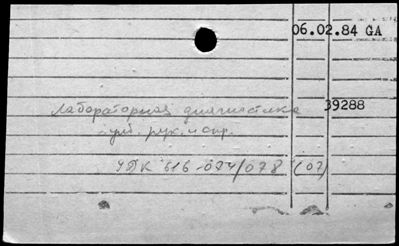 06.02.84 GA
39288
Лабораторная диагностика
рук. и спр.
УДК 616-074/078 (07)